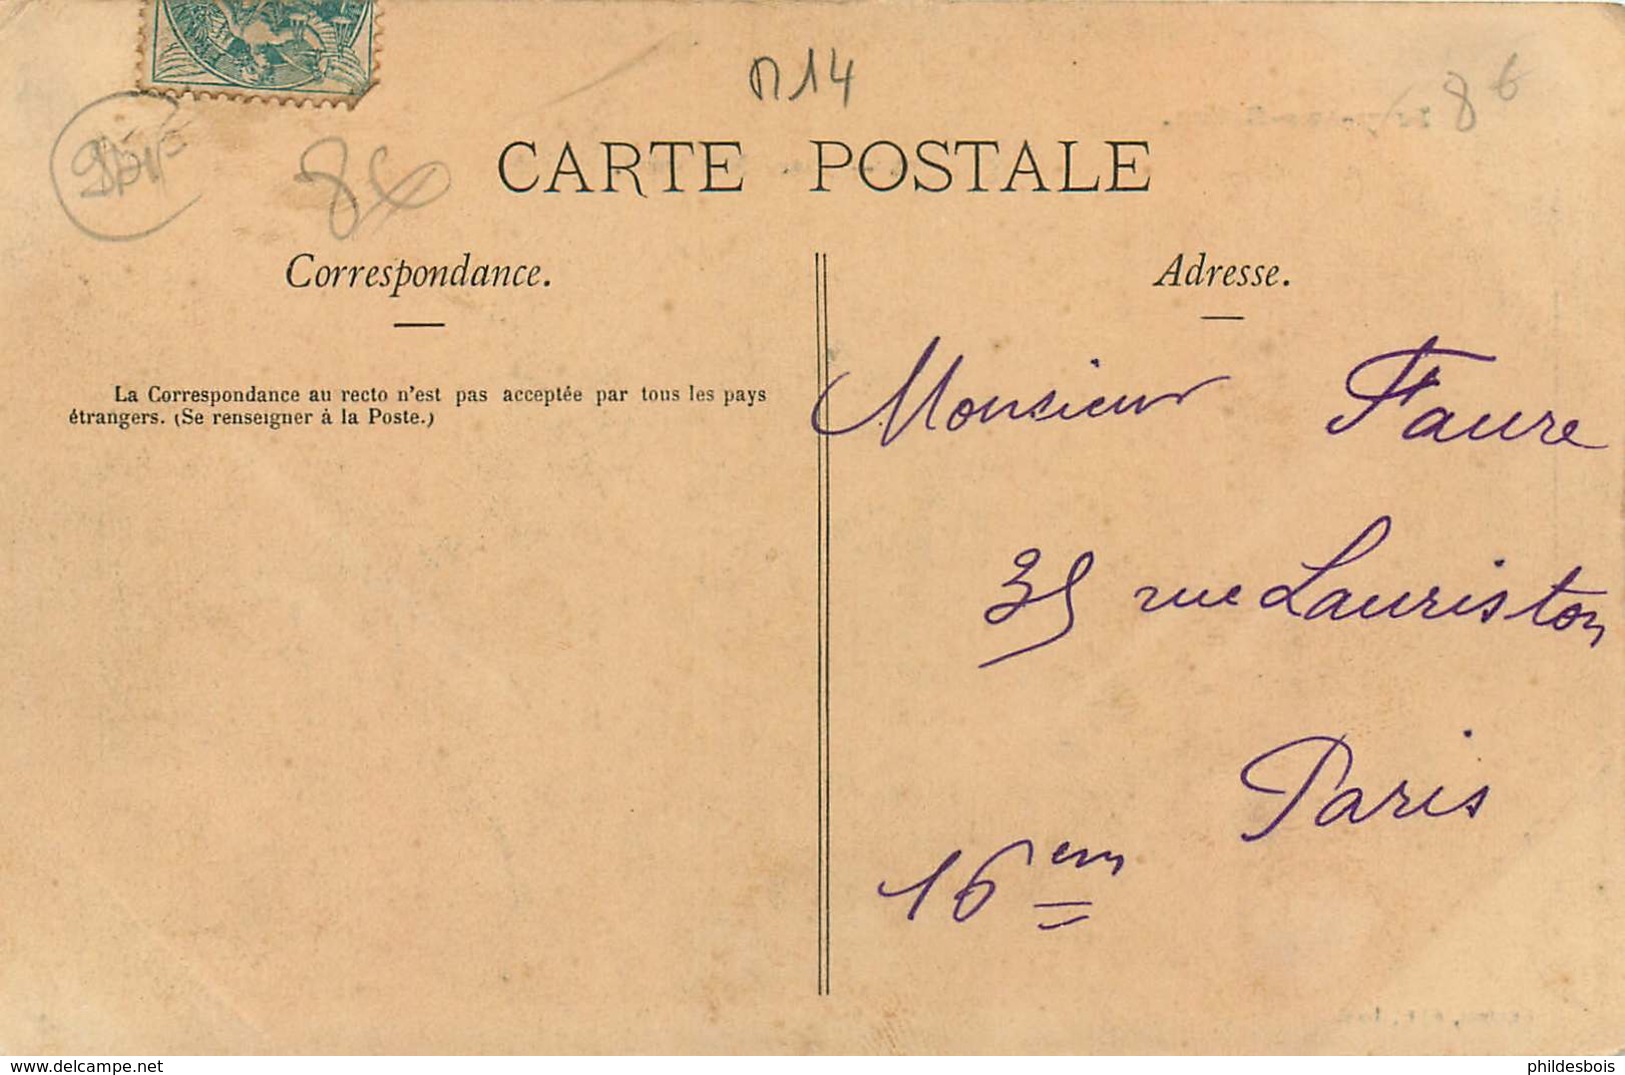 n14
86
86
CARTE POSTALE
Correspondance.
La Correspondance au recto n'est pas acceptée par tous les pays
étrangers. (Se renseigner à la Poste.)
Adresse.
Monsieur Faure
35 rue Lauriston
Paris
16em
https://www.delcampe.net
phildesbois